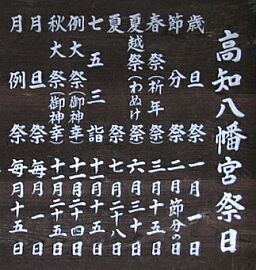 高知八幡宮祭日
歳旦祭 一月一日
節分祭 二月節分の日
春祭(祈年祭 三月十五日
夏越祭(わぬけ 六月三十日
夏祭 七月二十八日
七五三詣 十一月十五日
例大祭(御神幸)
秋大祭(御神幸)
月旦祭 毎月一日
月例祭 毎月十五日